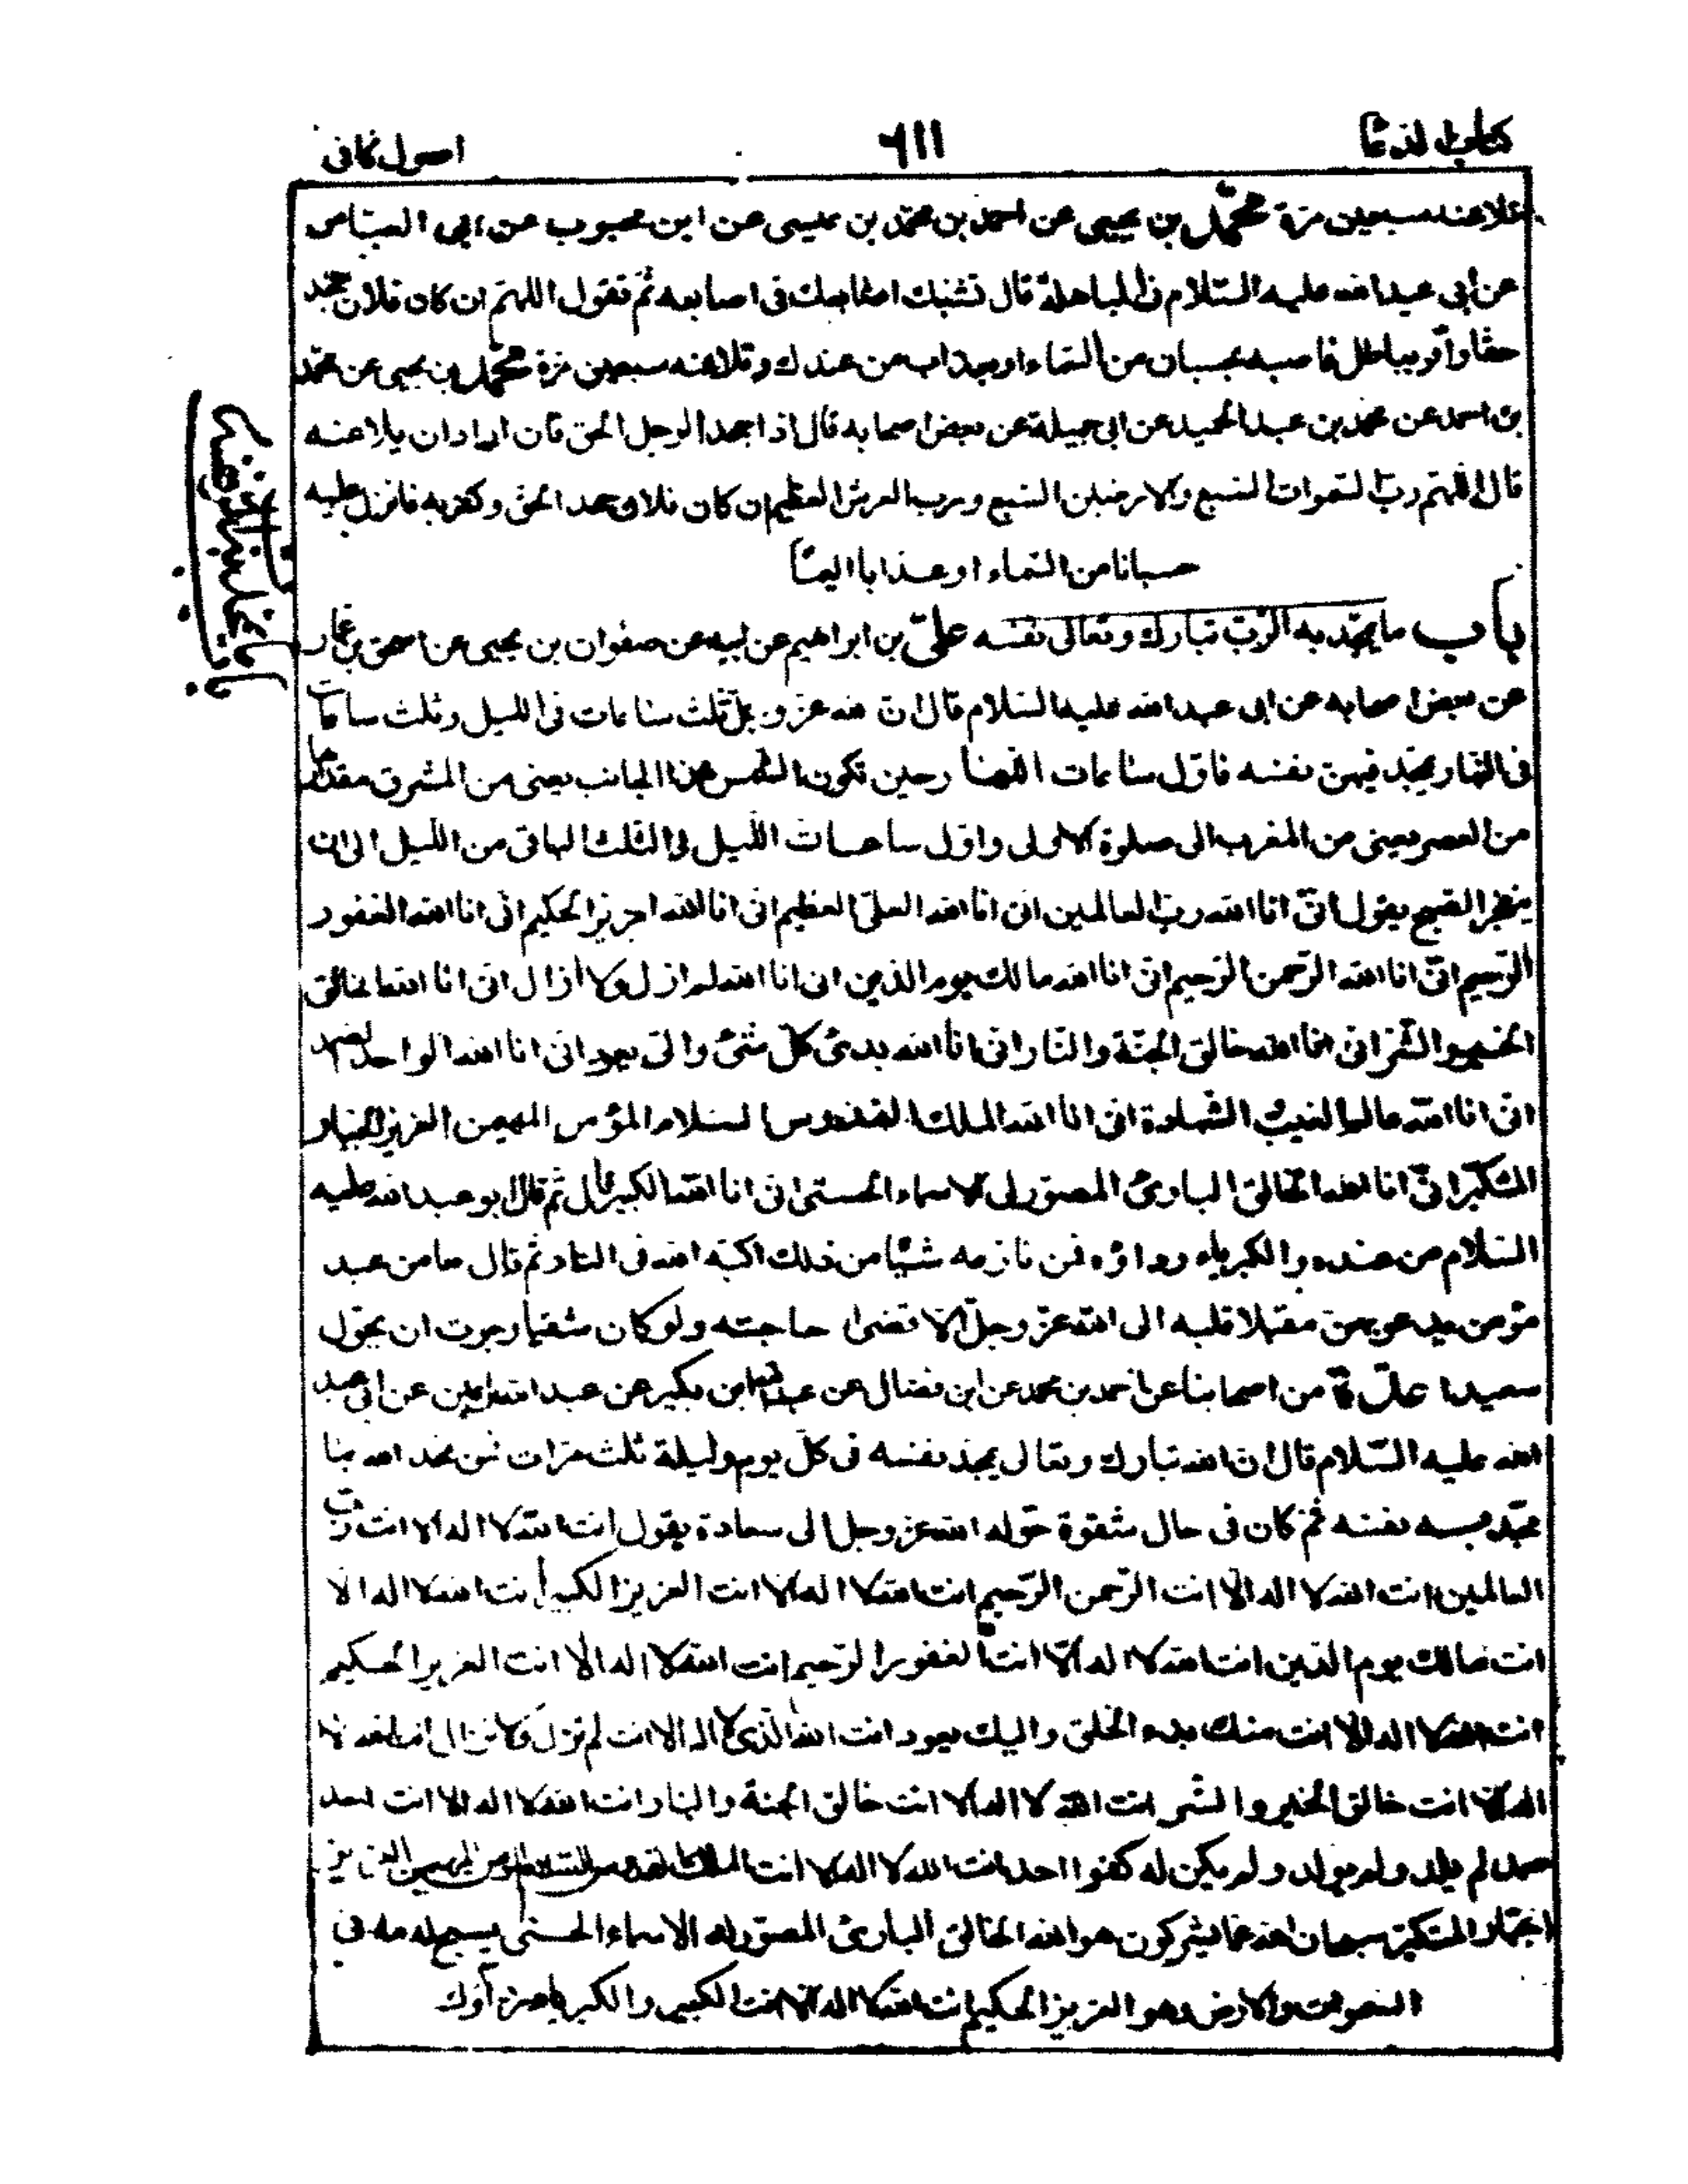 كتاب الدعا
٦١١
اصول كافى
تلاعنه سبعين مرة محمّد بن يحيى عن احمد بن محمّد بن عيسى عن ابن محبوب عن ابى العبّاس
عن أبى عبد الله عليه السّلام فى المباهلة قال تشبك اصابعك فى اصابعه ثم تقول اللهمّ ان كان فلان جحد
حقّا و أقرّ بباطل فاصبه بحسبان من السّماء او بعذاب من عندك و تلاعنه سبعين مرّة محمّد بن يحيى عن محمّد
بن احمد عن محمد بن عبد الحميد عن ابى جميلة عن بعض اصحابه قال اذا جحد الرجل الحق فان اراد ان يلاعنه
قال اللهمّ ربّ السّموات السّبع و الارضين السّبع و ربّ العرش العظيم ان كان فلان جحد الحقّ و كفر به فانزل عليه
حسبانا من السّماء او عذابا اليمًا
باب ما يمجّد به الرّبّ تبارك و تعالى نفسه علىّ بن ابراهيم عن ابيه عن صفوان بن يحيى عن اسحق بن عمّار
عن بعض اصحابه عن ابى عبد الله عليه السّلام قال انّ لله عزّ و جلّ ثلث ساعات فى الليل و ثلث ساعات
فى النّهار يمجّد فيهنّ نفسه فاوّل ساعات النّهار حين تكون الشّمس هذا الجانب يعنى من المشرق مقدارها
من العصر يعنى من المغرب الى صلوة الاولى و اوّل ساعات اللّيل فى الثّلث الباقى من اللّيل الى ان
ينفجر الصّبح يقول انّى انا الله ربّ العالمين انّى انا الله العلىّ العظيم انّى انا الله العزيز الحكيم انّى انا الله الغفور
الرّحيم انّى انا الله الرّحمن الرّحيم انّى انا الله مالك يوم الدّين انى انا الله لم ازل و لا أزال انّى انا الله خالق
الخير و الشّر انى انا الله خالق الجنّة و النّار انى انا الله بدىء كلّ شىء و الىّ يعود انى انا الله الواحد الصّمد
انّى انا الله عالم الغيب و الشّهادة انى انا الله الملك القدوس السّلام المؤمن المهيمن العزيز الجبّار
المتكبّر انّى انا الله الخالق البارئ المصوّر لى الاسماء الحسنى انى انا الله الكبير المتعال ثم قال ابو عبد الله عليه
السّلام من عنده و الكبرياء رداؤه فمن نازعه شيئا من ذلك اكبّه الله فى النّار ثم قال ما من عبد
مؤمن يدعو بهنّ مقبلا قلبه الى الله عزّ و جلّ الّا قضى حاجته و لو كان شقيا رجوت ان يحوّل
سعيدا عدّة من اصحابنا عن احمد بن محمد عن ابن فضال عن عبد الله بن بكير عن عبد الله بن اعين عن ابى عبد
الله عليه السّلام قال ان الله تبارك و تعالى يمجّد نفسه فى كلّ يوم و ليلة ثلث مرّات فمن مجّد الله بما
مجّد به نفسه ثم كان فى حال شقوة حوّله الله عز و جل الى سعادة يقول انت الله لا اله الا انت ربّ
العالمين انت الله لا اله الّا انت الرّحمن الرّحيم انت الله لا اله الا انت العزيز الكبير انت الله لا اله الا
انت مالك يوم الدّين انت الله لا اله الّا انت الغفور الرّحيم انت الله لا اله الّا انت العزيز الحكيم
انت الله لا اله الّا انت منك بدء الخلق و اليك يعود انت الله الّذى لا اله الا انت لم تزل و لا تزال انت الله لا
اله الّا انت خالق الخير و الشّر انت الله لا اله الا انت خالق الجنة و النار انت الله لا اله الا انت احد
صمد لم يلد و لم يولد و لم يكن له كفوا احد انت الله لا اله الا انت الملك القدوس السّلام المؤمن المهيمن العزيز
الجبّار المتكبّر سبحان الله عمّا يشركون هو الله الخالق البارئ المصوّر له الاسماء الحسنى يسبح له ما فى
السّموات و الارض و هو العزيز الحكيم انت الله لا اله الّا انت الكبير و الكبرياء رداؤك